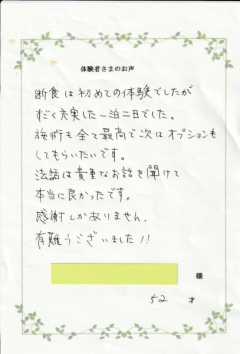 体験者さまのお声
断食は初めての体験でしたが
すごく充実した一泊二日でした。
施術も全て最高で次はオプションも
してもらいたいです。
法話は貴重なお話を聞けて
本当に良かったです。
感謝しかありません。
有難うございました!!
様
52 才